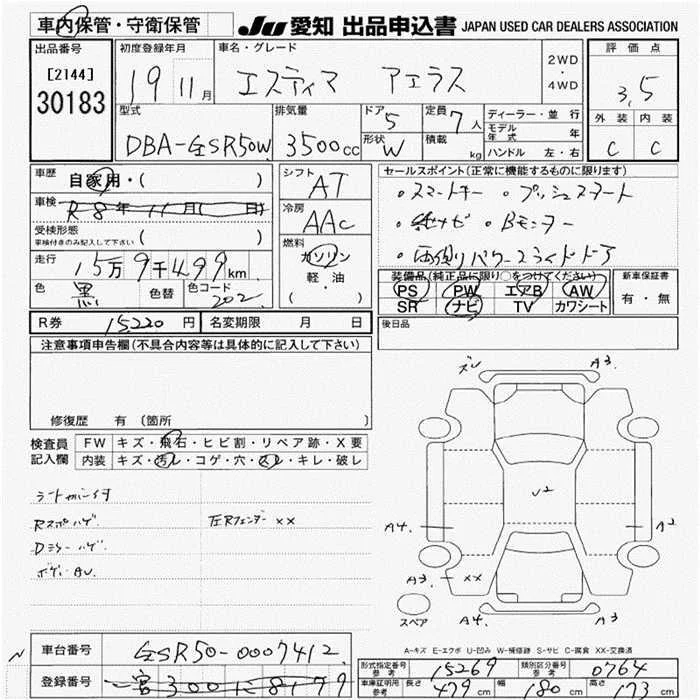 車内保管・守衛保管
JU 愛知 出品申込書 JAPAN USED CAR DEALERS ASSOCIATION
出品番号
[2144]
30183
初度登録年月
19 11月
車名・グレード
エスティマ アエラス
2WD
・
4WD
評価点
3.5
外装 内装
C C
型式
DBA-GSR50W
排気量
3500cc
ドア
5
形状
W
定員
7人
積載
kg
ディーラー・並行
モデル年式 年
ハンドル 左・右
車歴
自家用・( )
車検
R8年11月( 日)
受検形態
車検付きのみ記入して下さい ( )
走行
15万9千499km
色
黒
色替
色コード
202
シフト
AT
冷房
AAC
燃料
ガソリン
軽・油
( )
セールスポイント(正常に機能するものに限ります)
・スマートキー ・プッシュスタート
・純ナビ ・Bモニター
・両側パワースライドドア
装備品(純正品に限り○をつけてください)
PS PW エアB AW
SR ナビ TV カワシート
新車保証書
有・無
R券 15,220円
名変期限 月 日
後日品
注意事項申告欄(不具合内容等は具体的に記入して下さい)
修復歴 有 (箇所
検査員記入欄
FW キズ・飛石・ヒビ割・リペア跡・X要
内装 キズ・汚レ・コゲ・穴・スレ・キレ・破レ
Rスポハゲ
左Rフェンダー XX
Dミラーハゲ
ボディAU
ズレ A3
U2
A4 A2
A3 XX
A4 A3
スペア
A-キズ E-エクボ U-凹み W-補修跡 S-サビ C-腐食 XX-交換済
車台番号
GSR50-0007412
登録番号
一宮300 8179
形式指定番号
参考
15269
類別区分番号
参考
0764
車庫証明用
参考
長さ 479cm
幅 180cm
高さ 173cm